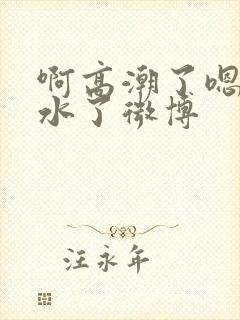 啊高潮了嗯
水了微博
汪永年